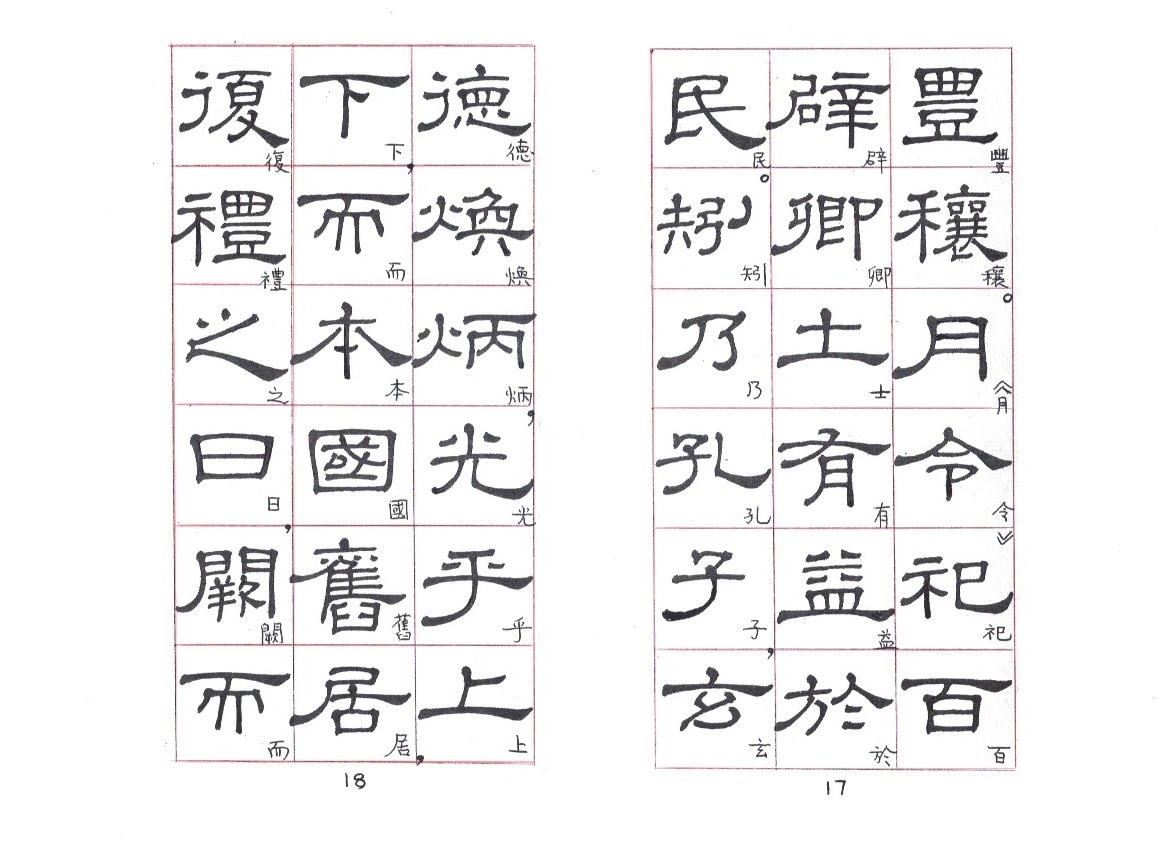 豊穰月令祀百
豐穰。月令祀百
辟卿士有益於
辟卿士有益於
民矧乃孔子玄
民。矧乃孔子,玄
17
德煥炳光乎上
德煥炳,光乎上
下而本國舊居
下,而本國舊居,
復禮之日闕而
復禮之日,闕而
18